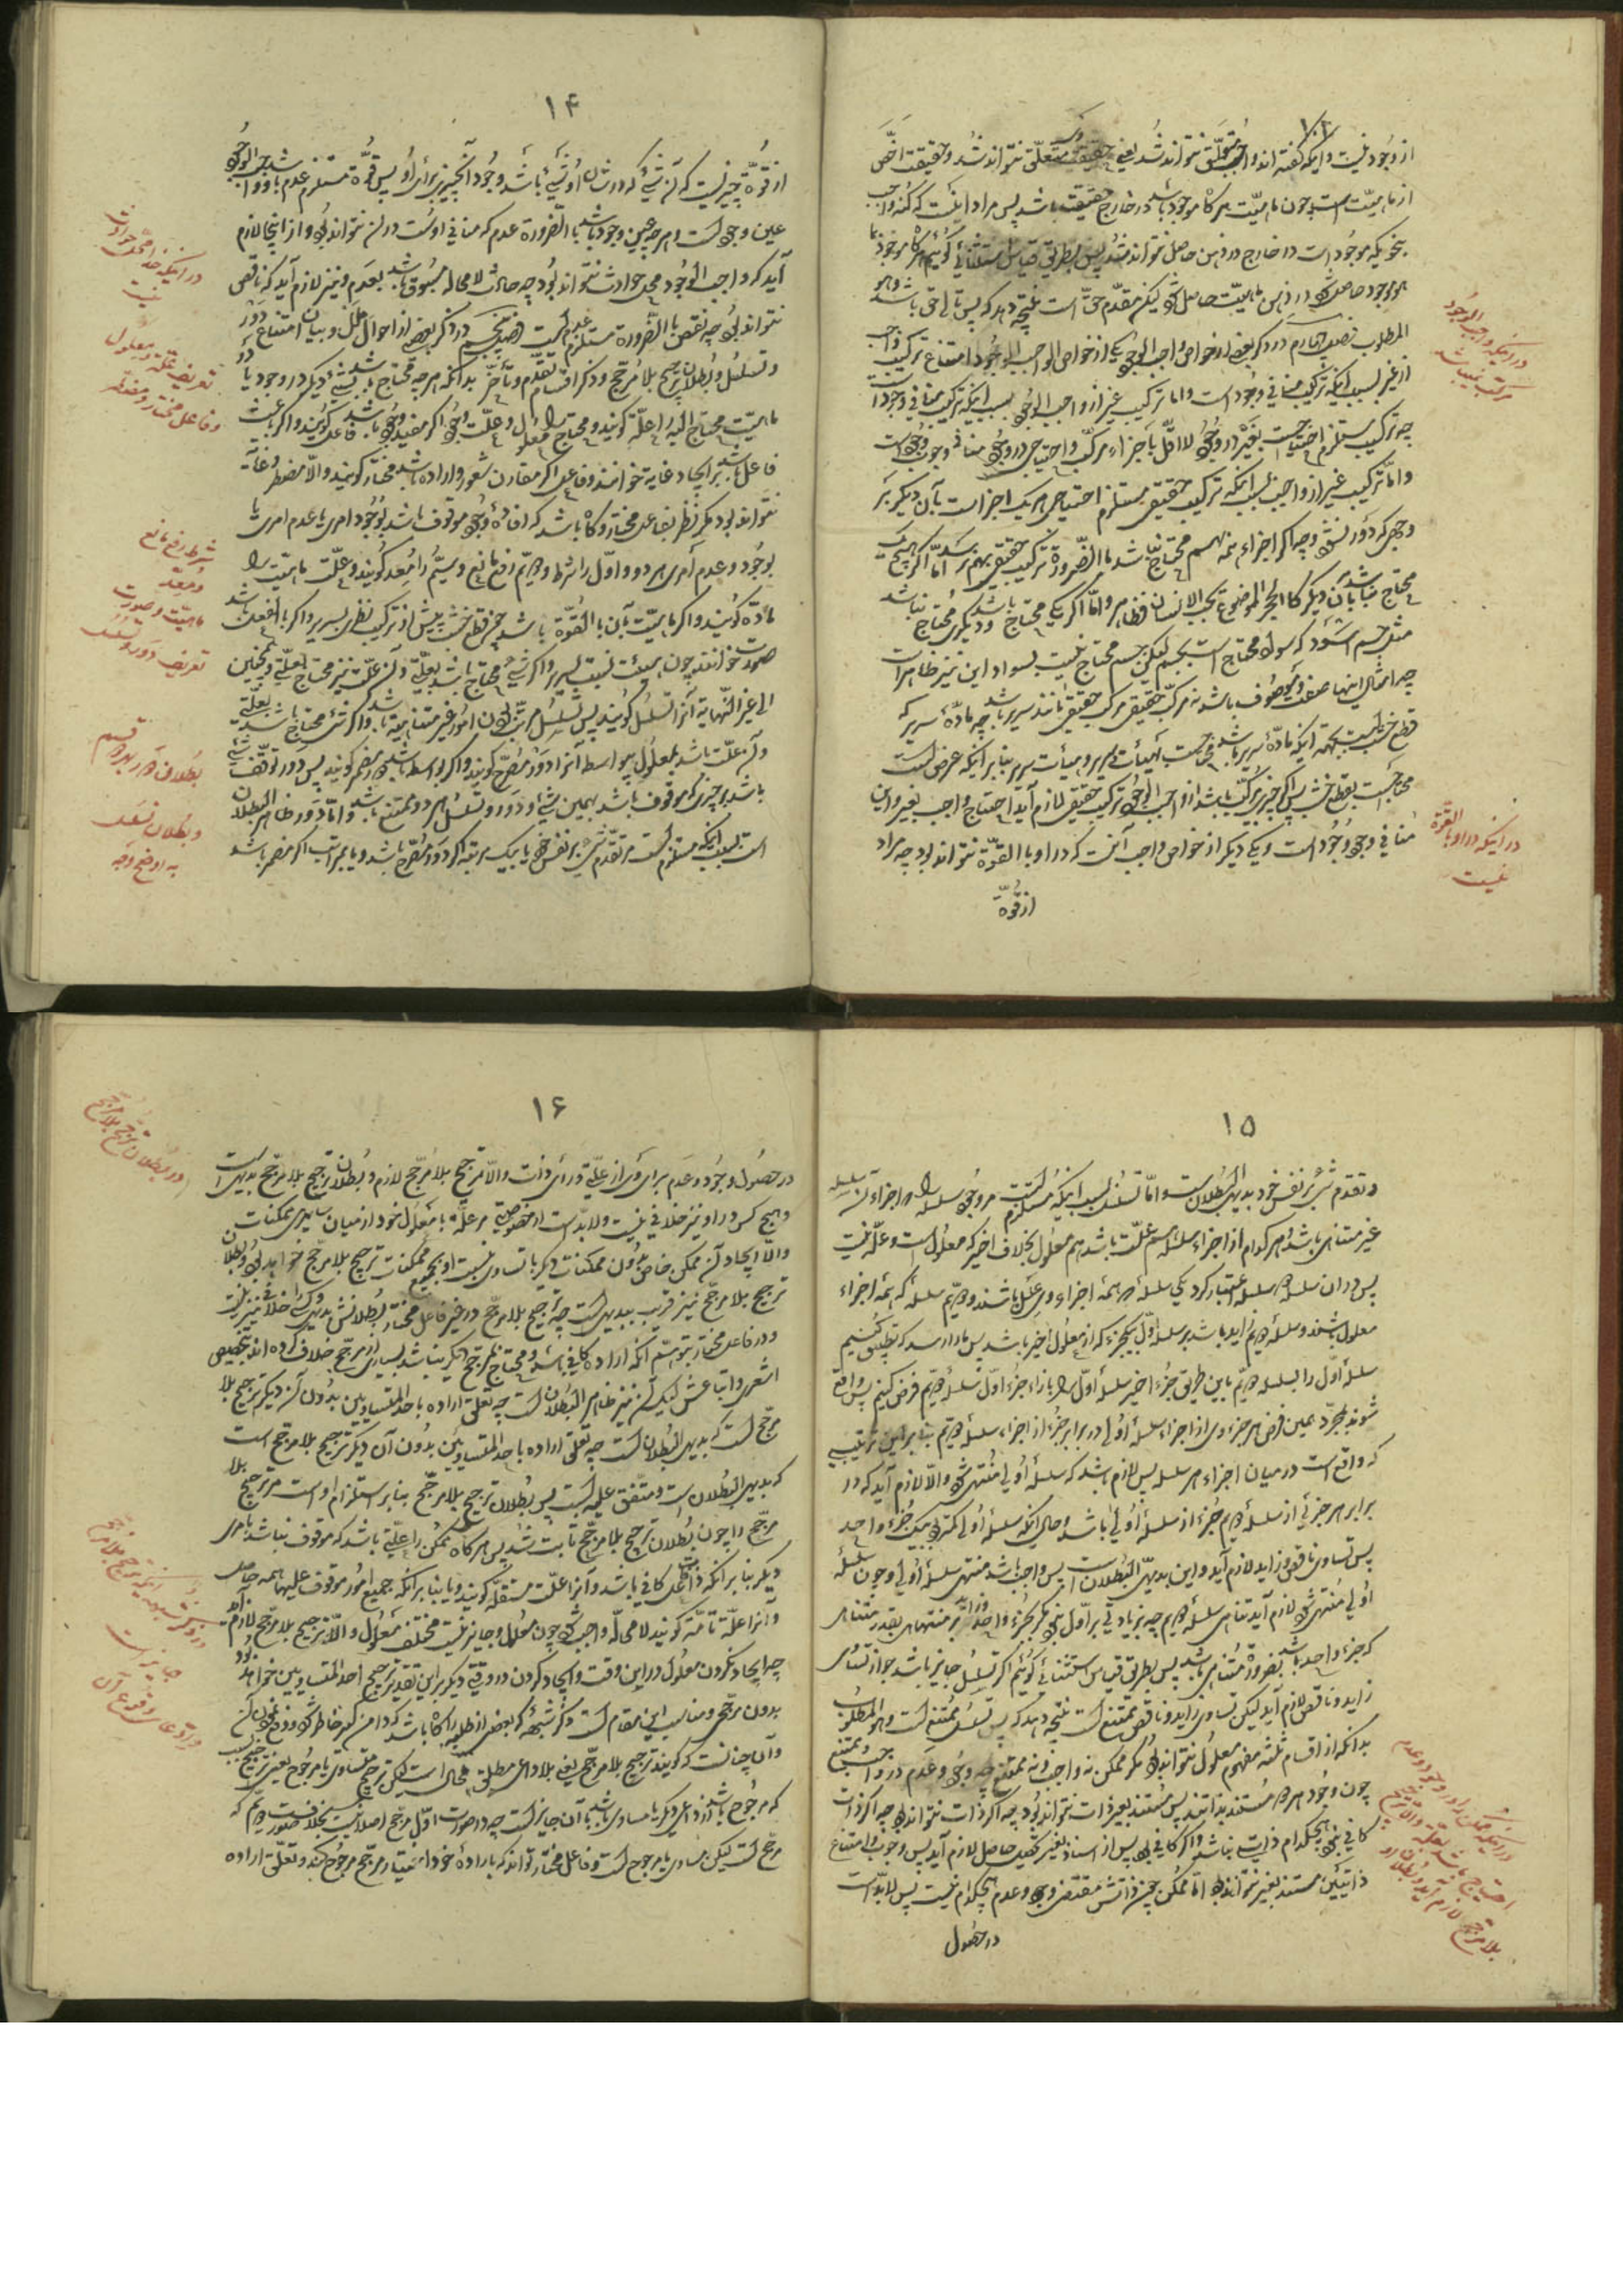 ۱۳
از وجود نیست و اینکه گفته‌اند واجب متعلق نتواند شد یعنی حقیقت متعلق نتواند شد و حقیقت اخص
از ماهیت است چون ماهیت هرگاه موجود باشد در خارج حقیقت باشد پس مراد اینست که کنه واجب
بنحویکه موجود است در خارج در ذهن حاصل نتواند شد پس بطریق قیاس استثنائی گوئیم هرگاه
موجود حاصل شود در ذهن ماهیت حاصل شود لیکن مقدم حق است نتیجه دهد که پس تالی حق باشد وهو
المطلوب فصل چهارم در ذکر بعضی از خواص واجب الوجود یکی از خواص الواجب الوجود امتناع ترکیب واجب
از غیر بسبب اینکه ترکیب منافی وجود است و اما ترکیب غیر از واجب الوجود بسبب اینکه ترکیب منافی وجود است
چه ترکیب مستلزم احتیاجست بغیر در وجود لا اقل باجزاء مرکب و احتیاج در وجود منافی وجوب وجود است
و اما ترکیب غیر از واجب بسبب اینکه ترکیب حقیقی مستلزم احتیاج هر یک اجزا است بآن دیگر بر
وجهی که دور نشود چه اگر اجزاء همه بهم محتاج نباشد بالضرورة ترکیب حقیقی بهم نرسد اما اگر هیچیک
محتاج نباشد بآن دیگر کالحجر الموضوع بجنب الانسان فظاهر و اما اگر یکی محتاج باشد و دیگری محتاج نباشد
مثل جسم اسود که سواد محتاج است بجسم لیکن جسم محتاج نیست بسواد و این نیز ظاهر است
چه امثال اینها صفت و موصوف باشد نه مرکب حقیقی مرکب حقیقی مانند سریر باشد چه مادهٔ سریر که
قطع خشب است بجهة اینکه مادهٔ سریر باشد محتاجست بهیأت سریر و هیأت سریر بنابر اینکه عرض است
محتاجست بقطع خشب پس اگر چیزی مرکب باشد از واجب الوجود ترکیب حقیقی لازم آید احتیاج واجب بغیر و این
منافی وجوب وجود است و یکی دیگر از خواص واجب آنست که در او بالقوة نتواند بود چه مراد
از قوة
در اینکه واجب الوجود
مرکب نمیباشد
در اینکه در او بالقوة
نیست
۱۴
از قوة چیزیست که آن شیء که در شان او شیء باشد وجود آنچیز برای او پس قوة مستلزم عدم باشد و واجب الوجود
عین وجود است و هرچه عین وجود باشد بالضرورة عدم که منافی اوست در آن نتواند بود و از اینجا لازم
آید که واجب الوجود محل حوادث نتواند بود چه حادث لا محاله مسبوق باشد بعدم و نیز لازم آید که ناقص
نتواند بود چه نقص بالضرورة مستلزم عدم است فصل پنجم در ذکر بعضی از احوال علل و بیان امتناع دور
و تسلسل و بطلان ترجیح بلا مرجح و ذکر اقسام تقدم و تأخر بدانکه هرچه محتاج باشد بشیء دیگر در وجود یا در
ماهیت محتاج الیه را علة گویند و محتاج را معلول و علت وجود اگر مفید وجود باشد فاعل گویند و اگر باعث
فاعل باشد بر ایجاد غایة خوانند و فاعل اگر مقارن شعور و اراده باشد مختار گویند و الا مضطر و غایة
نتواند بود مگر نظر بفاعل مختار و گاه باشد که افادهٔ وجود موقوف باشد بوجود امری یا عدم امری یا
بوجود و عدم امری هر دو و اول را شرط و دویم رفع مانع و سیم را معد گویند و علت ماهیت را
ماده گویند و اگر ماهیت بآن بالقوة باشد چون قطع خشب پیش از ترکیب نظر بسریر و اگر بالفعل باشد
صورت خوانند چون هیئت نسبت بسریر و اگر شیء محتاج باشد بعلتی و آن علت نیز محتاج بعلتی و همچنین
الی غیر النهایة آنرا تسلسل گویند پس تسلسل مرتب بودن امور غیر متناهیة باشد و اگر شیء محتاج باشد بعلتی
و آن علت باشد بمعلول بیواسطه آنرا دور مصرح گویند و اگر بواسطه باشد دور مضمر گویند پس دور توقف شیء
باشد بر چیزی که موقوف باشد بهمین شیء و دور و تسلسل هر دو ممتنع باشد و اما دور ظاهر البطلان
است بسبب اینکه مستلزم است مر تقدم شیء بر نفس خود یا بیک مرتبه اگر دور مصرح باشد و یا بمراتب اگر مضمر باشد
در اینکه خدا محل حوادث
نیست
تعریف علة و معلول
و فاعل مختار و مضطر
شرط رفع مانع
و معد
ماهیت و صورت
تعریف دور و تسلسل
بطلان دور بهر دو قسم
و بطلان تسلسل
به اوضح وجه
۱۵
و تقدم شیء بر نفس خود بدیهی البطلان است و اما تسلسل بسبب اینکه مستلزم است مر وجود سلسله را و اجزاء آن سلسله
غیر متناهی باشد و هر کدام از اجزاء سلسله هم علت باشد هم معلول بخلاف اخیر که معلول است و علة نیست
پس در آن سلسله دو سلسله اعتبار کرد یکی سلسله که همه اجزاء وی علل باشند و دویم سلسله که همه اجزاء
معلول باشند و سلسله دویم زاید باشد بر سلسله اول بیکجزء که آن معلول اخیر باشد پس ما را رسد که تطبیق کنیم
سلسله اول را بسلسله دویم باین طریق که جزء اخیر سلسله اول را بازاء جزء اول سلسله دویم فرض کنیم پس واقع
شوند بمجرد همین فرض هر جزء وی از اجزاء سلسله اولی در برابر جزء از اجزاء سلسله دویم بنابر این ترتیبی
که واقع است در میان اجزاء هر سلسله پس لازم باشد که سلسله اولی منتهی شود و الا لازم آید که در
برابر هر جزئی از سلسله دویم جزء از سلسله اولی باشد و حال آنکه سلسله اولی کمتر است بیک جزء واحد
پس تساوی ناقص و زاید لازم آید و این بدیهی البطلان است پس واجب باشد منتهی سلسله اولی و چون سلسله
اولی منتهی شود لازم آید تناهی سلسله دویم چه زیادتی بر اول نبود مگر بجزء واحد و زاید بر متناهی بقدر متناهی
که جزء واحد باشد بضرورة متناهی باشد پس بطریق قیاس استثنائی گوئیم اگر تسلسل جایز باشد جواز تساوی
زاید و ناقص لازم آید لیکن تساوی زاید و ناقص ممتنع است نتیجه دهد که پس تسلسل ممتنع است وهو المطلوب
بدانکه از اقسام ثلثه مفهوم معلول نتواند بود مگر ممکن نه واجب و نه ممتنع چه وجود و عدم در واجب و ممتنع
چون وجود هر دو مستند بذاتند پس مستند بغیر ذات نتواند بود چه اگر ذات نتواند بود چه اگر ذات
کافی نبود هیچکدام ذاتی نباشد و اگر کافی بود پس از استناد بغیر تحصیل حاصل لازم آید پس وجوب و امتناع
ذاتیین مستند بغیر نتواند بود اما ممکن چون ذاتش مقتضی وجود و عدم هیچکدام نیست پس لابد است
در حصول
در اینکه ممکن را در وجود و عدم
احتیاج باشد بعلة و الا ترجیح
بلا مرجح لازم آید و بطلان او
۱۶
در حصول وجود و عدم برای وی از علتی ورای ذات و الا ترجیح بلا مرجح لازم و بطلان ترجیح بلا مرجح بدیهی است
و هیچ کس در او نیز خلافی نیست و لابد است از خصوصیتی مر علة با معلول خود از میان سایر ممکنات
و الا ایجاد آن ممکن خاص بدون ممکنات دیگر با تساوی نسبت او بجمیع ممکنات ترجیح بلا مرجح خواهد بود و بطلان
ترجیح بلا مرجح نیز قریب ببدیهی است چه ترجیح بلا مرجح در غیر فاعل مختار بطلانش بدیهی و کسی را خلافی نیز نیست
و در فاعل مختار بتوهم آنکه اراده کافی باشد و محتاج بمرجح دیگر نباشد بسیاری از مرجح خلاف کرده‌اند بتخصیص
اشعری و اتباعش لیکن آن نیز ظاهر البطلان است چه تعلق اراده باحد المتساویین بدون آن دیگر ترجیح بلا
مرجح است که بدیهی البطلان است چه تعلق اراده باحد المتساویین بدون آن دیگر ترجیح بلا مرجح است
که بدیهی البطلان است و متفق علیه است پس بطلان ترجیح بلا مرجح بنابر استلزام او است مر ترجیح بلا
مرجح را چون بطلان ترجیح بلا مرجح ثابت شد پس هرگاه ممکن را علتی باشد که موقوف نباشد بامری
دیگر بنابر آنکه ذات فاعل کافی باشد و آنرا علت مستقله گویند و یا بنابر آنکه جمیع امور موقوف علیها همه حاصل
و آنرا علة تامة گویند لا محاله واجب شود چون معلول و جایز نیست تخلف معلول و الا ترجیح بلا مرجح لازم آید
چه ایجاد نکردن معلول در این وقت و ایجاد کردن در وقتی دیگر بر این تقدیر ترجیح احد المتساویین خواهد بود
بدون مرجح و مناسب این مقام است ذکر شبهه که بعضی از طلبه را گاه باشد که دامن گیر خاطر شود و دفع آن
و آن چنانست که گویند ترجیح بلا مرجح یعنی بلا داعی مطلق محال است لیکن ترجیح متساوی یا مرجوح یعنی ترجیح
که مرجوح باشد از داعی دیگر یا مساوی باشد بآن جایز است چه در صورت اول مرجح اصلا نیست بخلاف صورت دویم که
مرجح است لیکن مساوی یا مرجوح است و فاعل مختار تواند که باراده خود اختیار مرجح مرجوح کند و تعلق اراده
در بطلان ترجیح بلا مرجح
در ذکر شبهه اینکه ترجیح بلا مرجح
جایز است
و ادعای وقوع آن